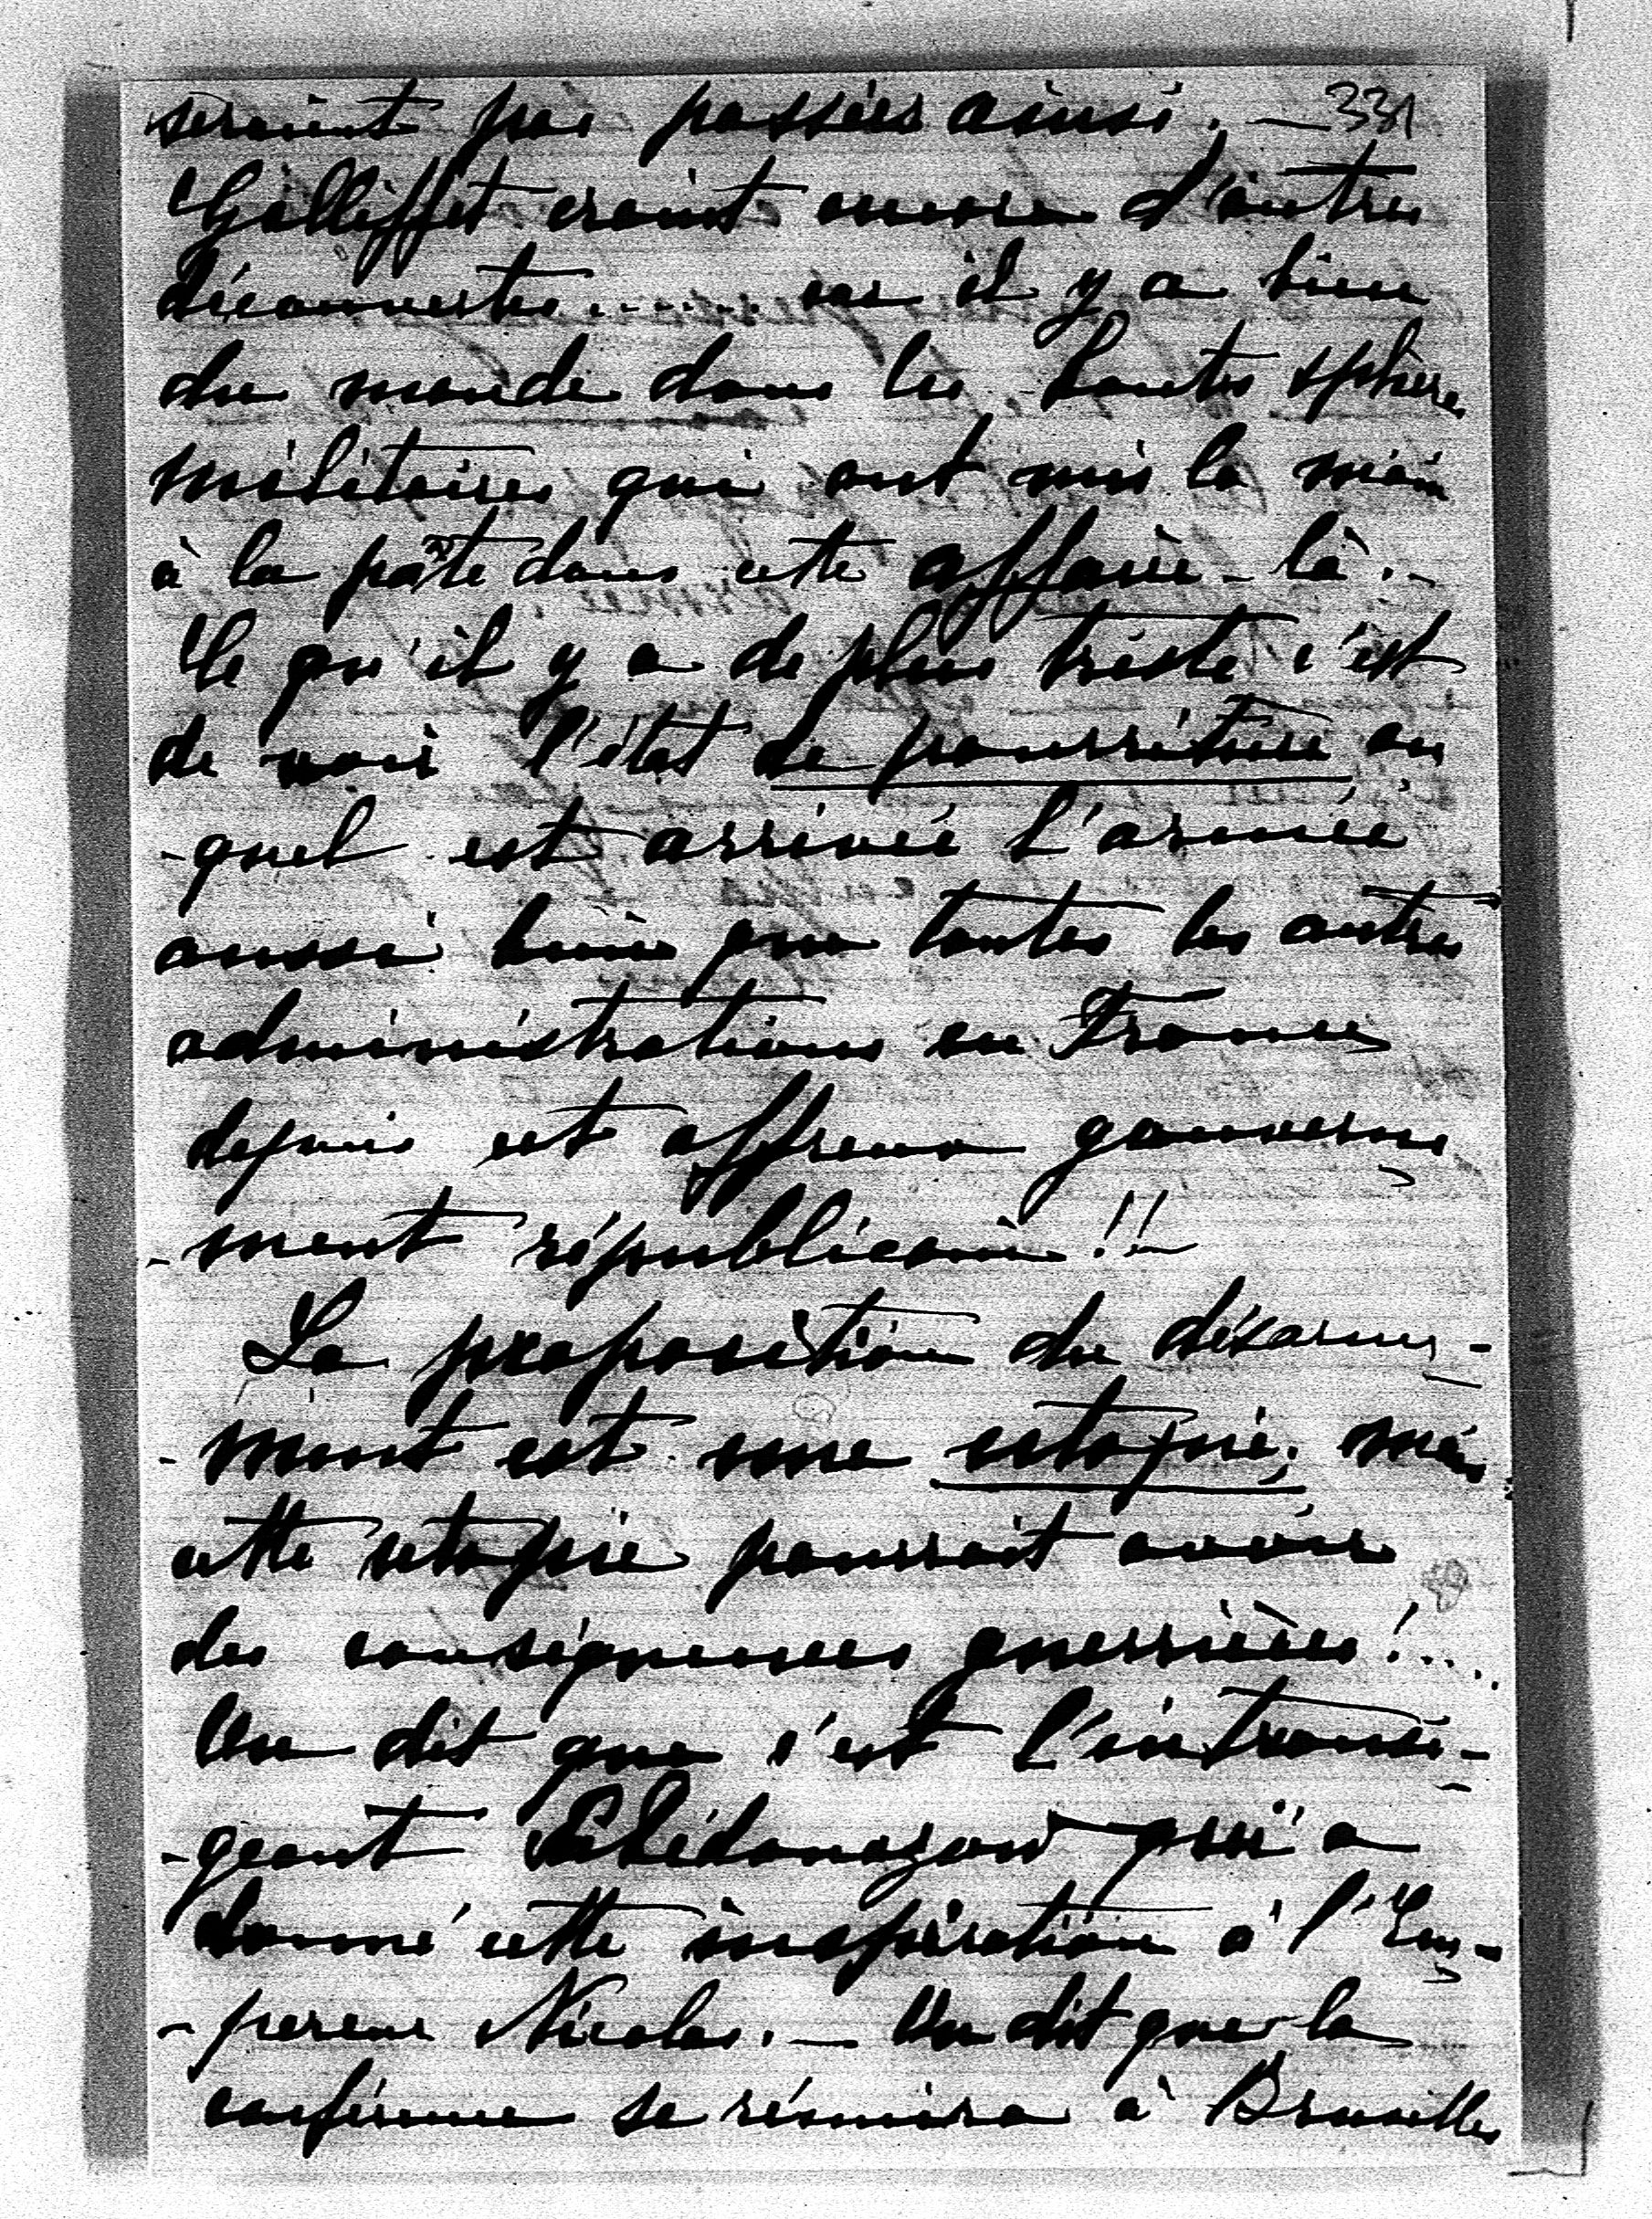 seraient pas passées ainsi. — 331
Galliffet craint encore d'autres
découvertes... car il y a bien
du monde dans les hautes sphères
militaires qui ont mis la main
à la pâte dans cette affaire-là.-
Ce qu'il y a de plus triste c'est
de voir l'état de pourriture au
-quel est arrivée l'armée
aussi bien que toutes les autres
administrations en France
depuis cet affreux gouverne
-ment républicain!!
La proposition du désarme-
-ment est une utopie; mais
cette utopie pourrait avoir
des conséquences guerrières!....
On dit que c'est l'intransi-
-geant Pobédonozow qui a
donné cette inspiration à l'Em-
-pereur Nicolas. — On dit que la
conférence se réunira à Bruxelles